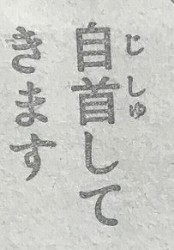 自首して
きます
じしゅ